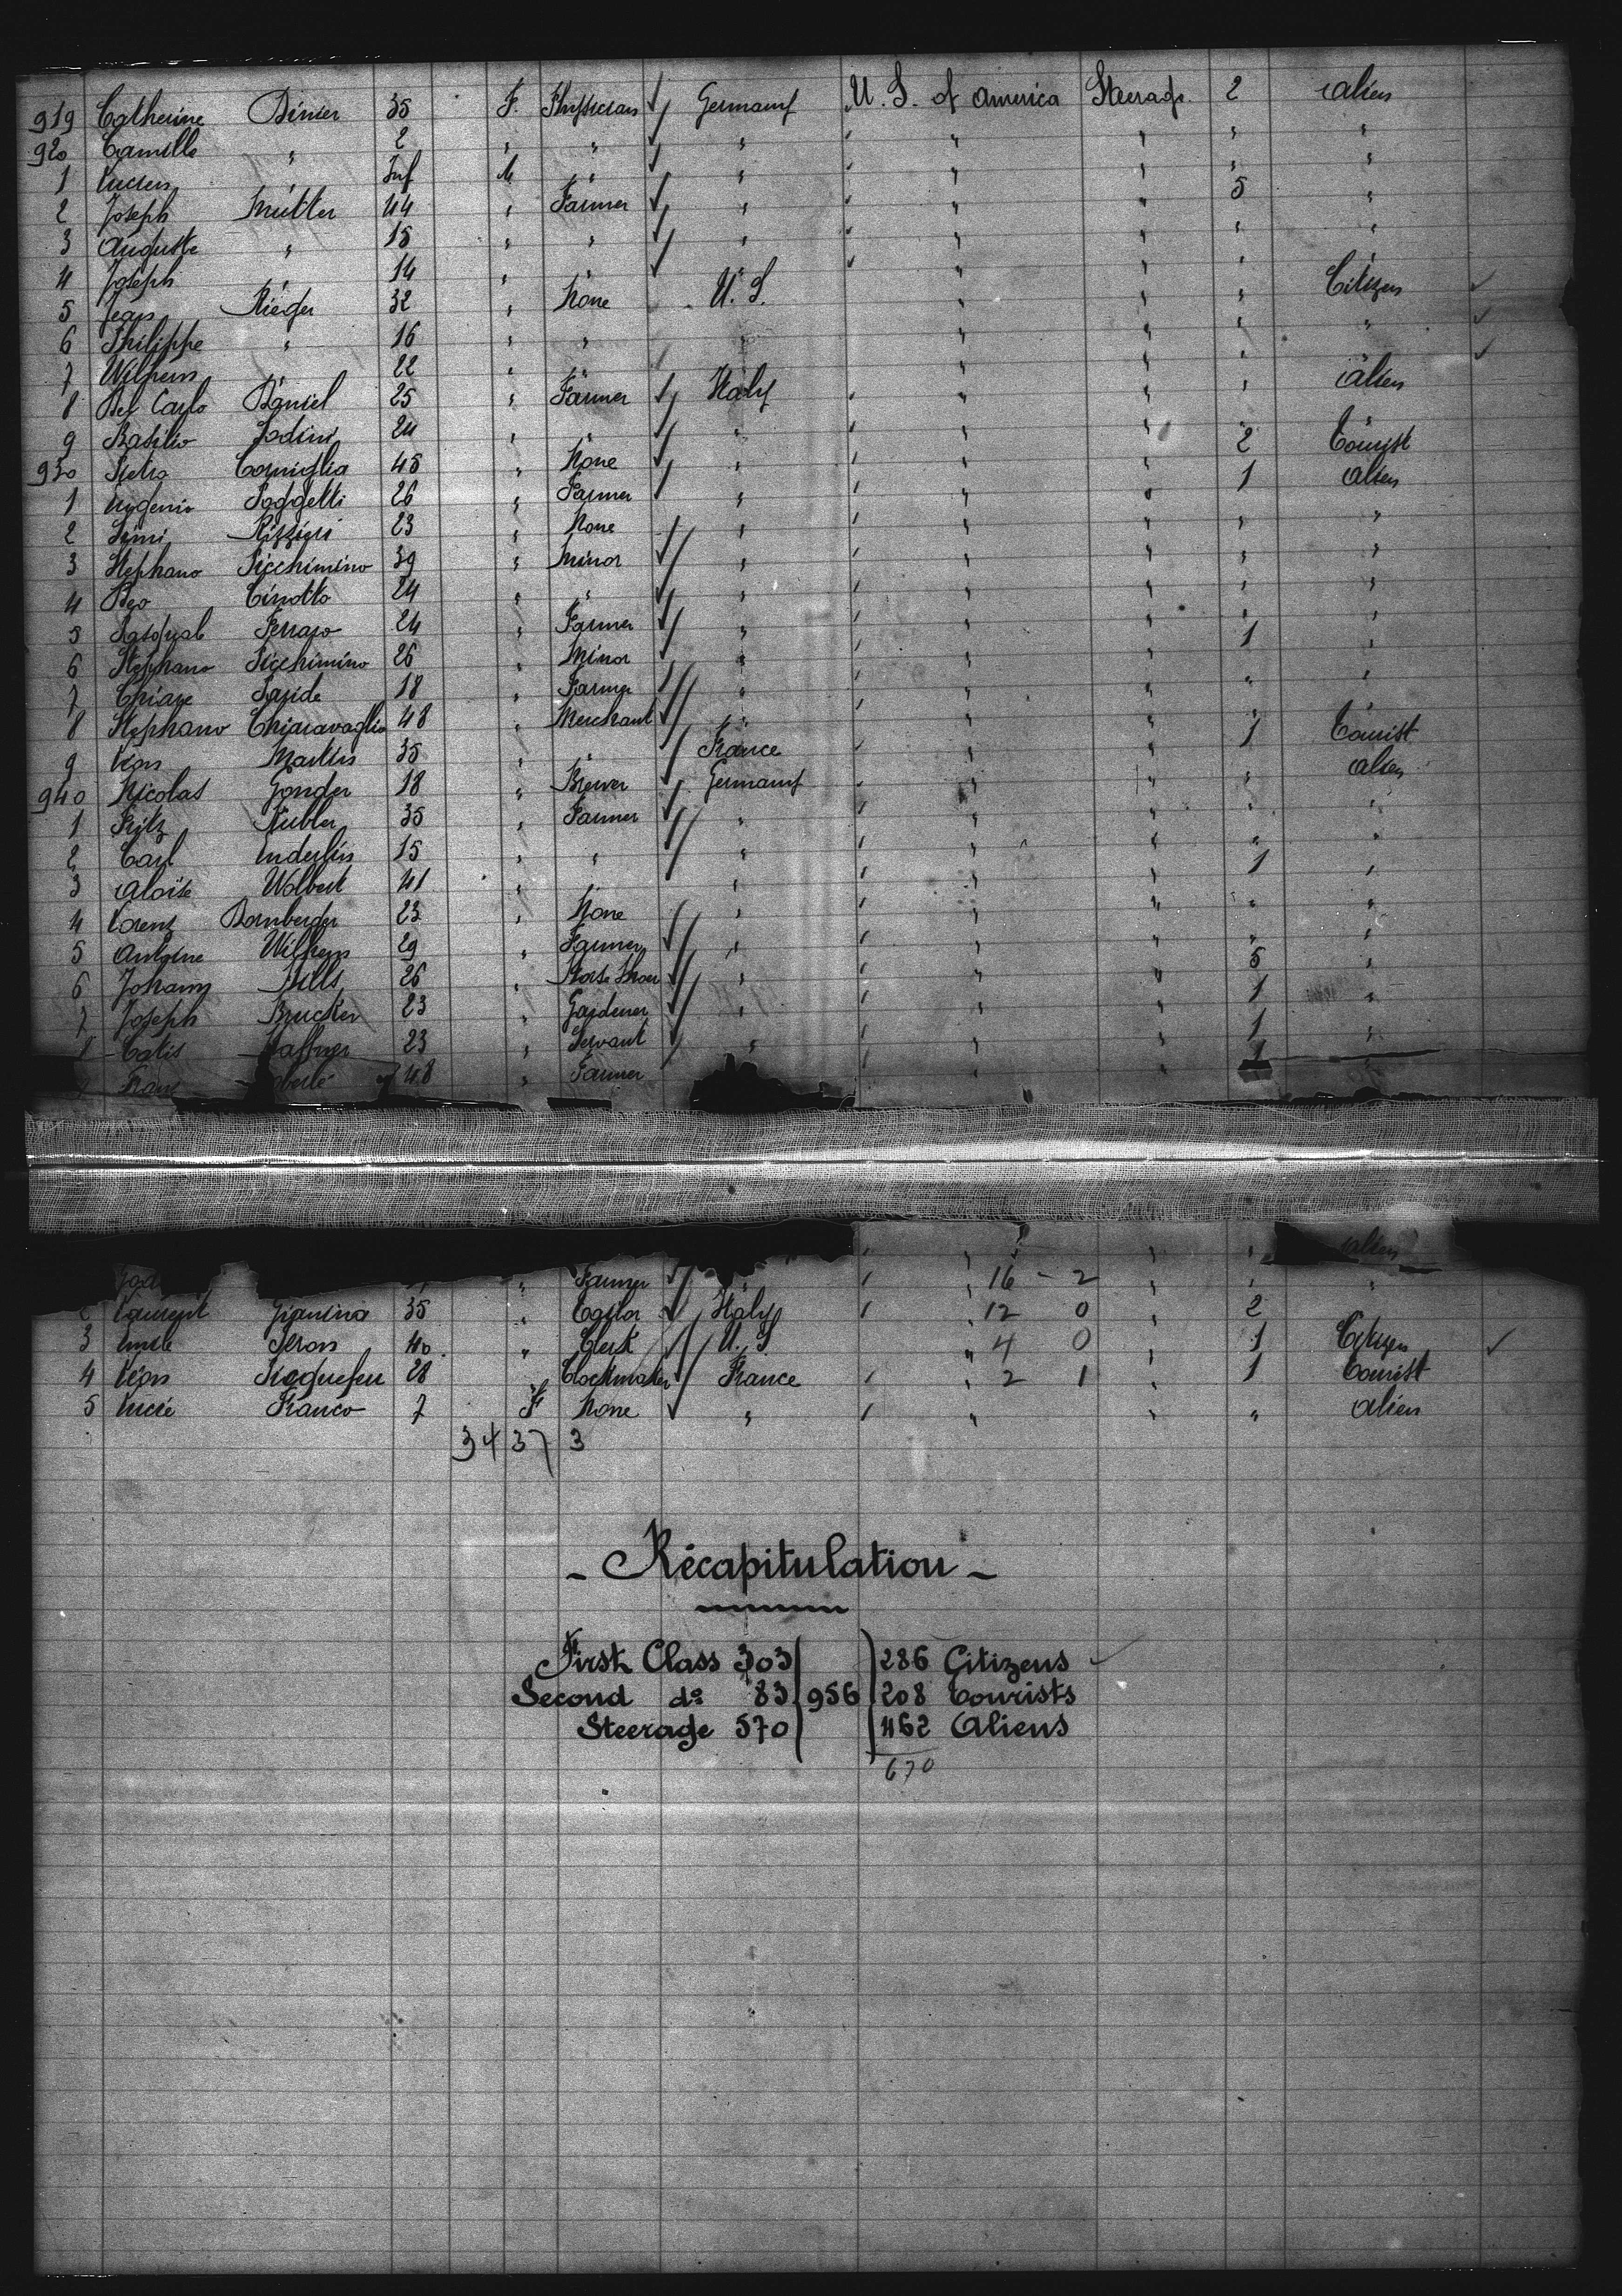 919 Catherine Dinier 35 F. Physician Germany U. S. of America Steerage 2 Alien
920 Camille " 2 " " " " " " "
1 Lucien " Inf M " " " " " "
2 Joseph Mutter 44 " Farmer " " " 5 "
3 Auguste " 15 " " " " " " "
4 Joseph " 14 " " " " " " "
5 Jean Rieger 32 " None U. S. " " " Citizen
6 Philippe " 16 " " " " " " "
7 Wilhem " 22 " " " " " " "
8 Del Carlo Daniel 25 " Farmer Italy " " " Alien
9 Basilio Jodini 24 " " " " " " "
930 Pietro Comiglia 45 " None " " " 2 Tourist
1 Eugenio Poggetti 26 " Farmer " " " 1 Alien
2 Simi Rizzieri 23 " None " " " " "
3 Stephano Picchimino 39 " Minor " " " " "
4 Beo Cinotto 24 " " " " " " "
5 Pasqual Ferraro 24 " Farmer " " " " "
6 Stephano Picchimino 26 " Minor " " " 1 "
7 Chiare Paride 18 " Farmer " " " " "
8 Stephano Chiaravaglio 48 " Merchant " " " " "
9 Léon Martin 35 " " France " " 1 Tourist
940 Nicolas Gonder 18 " Brewer Germany " " " Alien
1 Fritz Kubler 35 " Farmer " " " " "
2 Carl Enderlin 15 " " " " " " "
3 Aloïse Wolbert 41 " " " " " 1 "
4 Lorenz Dornberger 23 " None " " " " "
5 Antoine Wilhem 29 " Farmer " " " " "
6 Johann 26 " Horse Shoer " " " 5 "
7 Joseph Brucker 23 " Gardener " " " 1 "
8 Haffner 23 " Servant " " " 1 "
Franz 48 " Farmer " " 1
" " " " Alien
" Farmer " " 16 - 2 " " "
2 Laurent Gianina 35 " Tailor Italy " 12 0 " 2 "
3 Emile 40 " Clerk U. S " 4 0 " 1 Citizen
4 Léon Roquefeu 28 Clockmaker France " 2 1 " 1 Tourist
5 Lucie Franco 7 F None " " " " Alien
34 37 3
- Récapitulation -
First Class 303 286 Citizens
Second do 83 956 208 Tourists
Steerage 570 462 Aliens
670